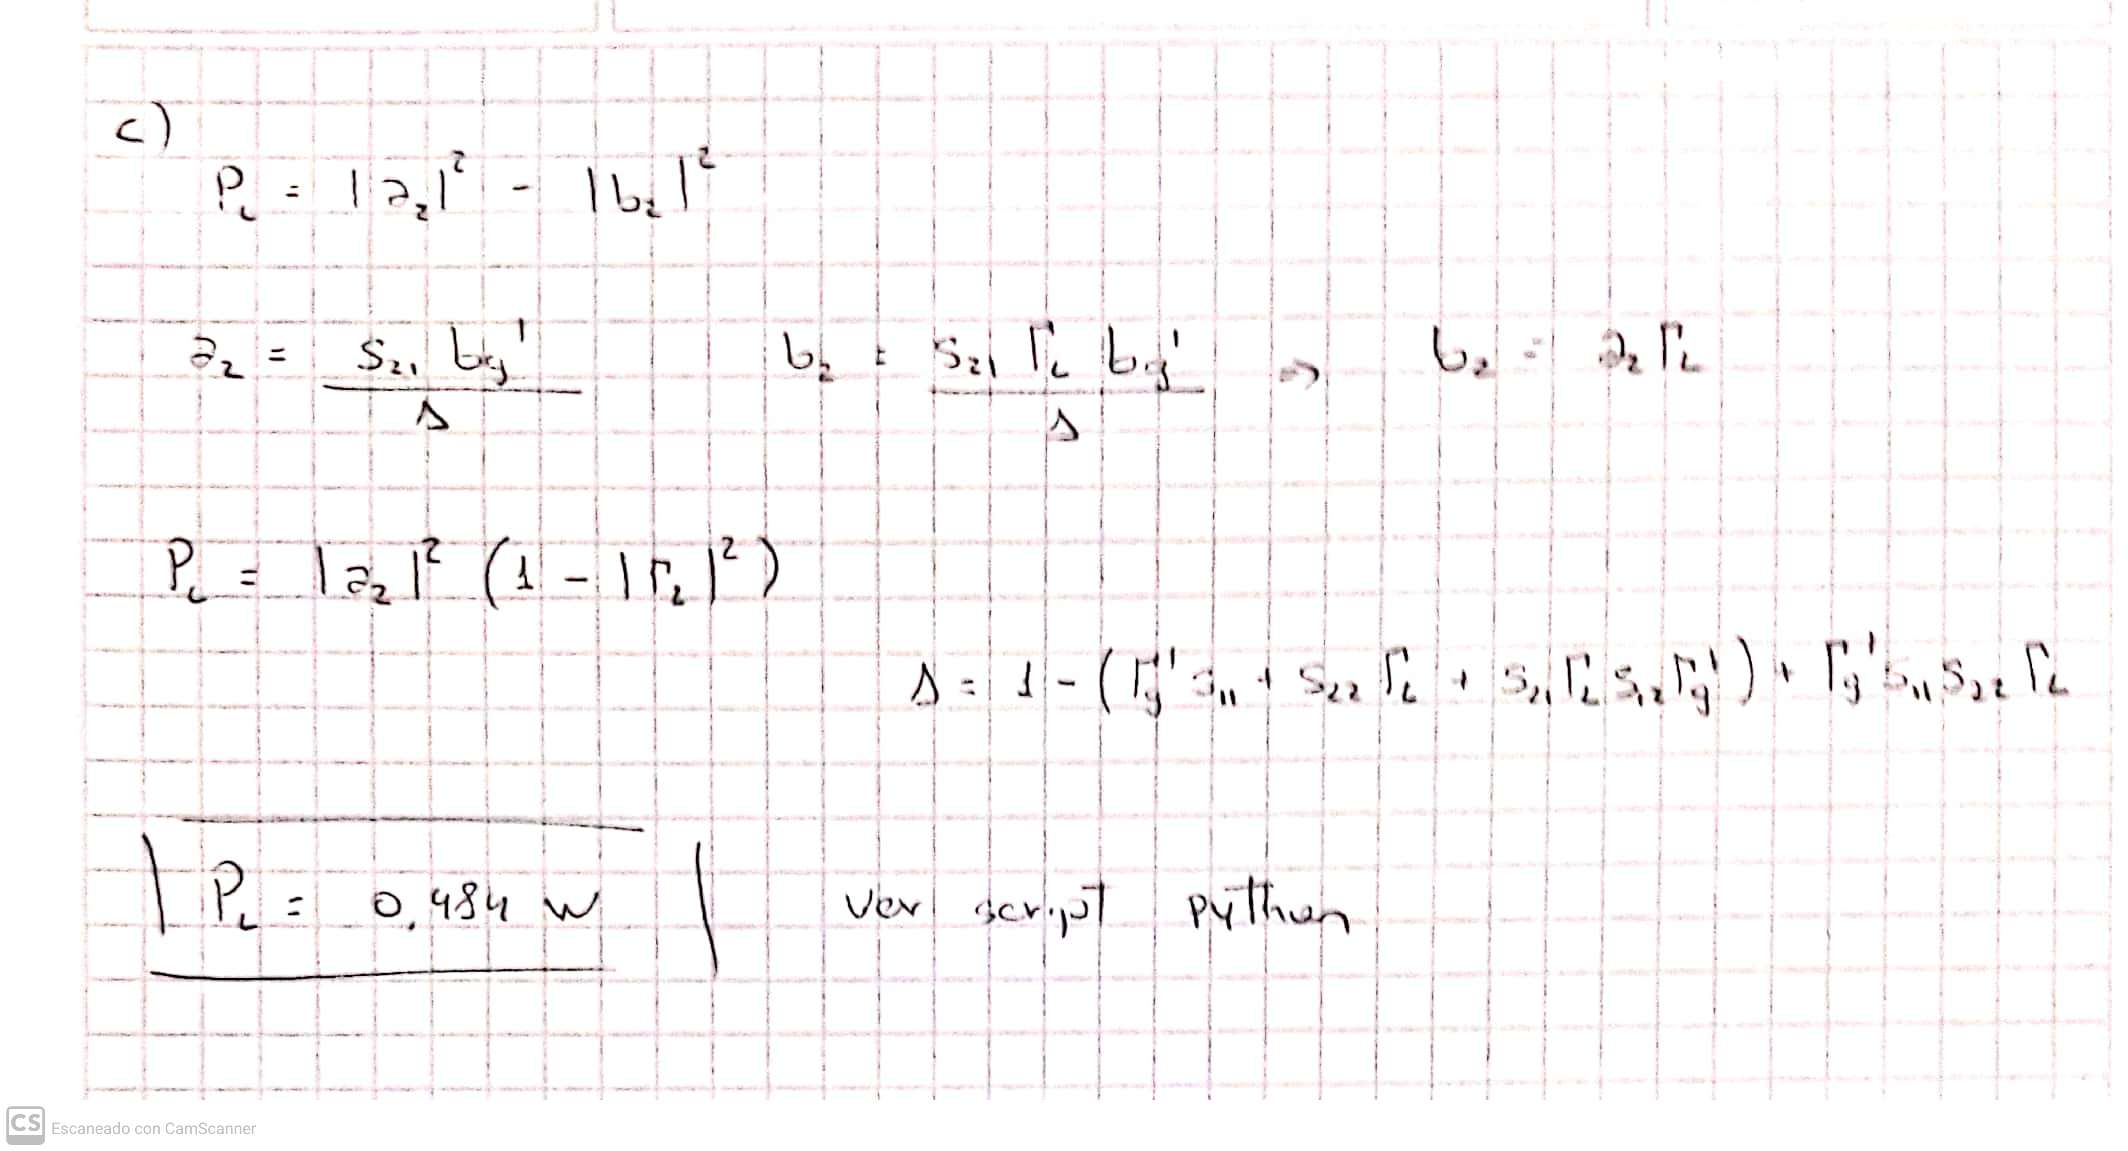 c)
P_L = |a_2|^2 - |b_2|^2
a_2 = \frac{S_{21} b_g'}{Δ}    b_2 = \frac{S_{21} Γ_L b_g'}{Δ} ⇒ b_2 = a_2 Γ_L
P_L = |a_2|^2 (1 - |Γ_L|^2)
Δ = 1 - (Γ_g' S_{11} + S_{22} Γ_L + S_{21} Γ_L S_{12} Γ_g') + Γ_g' S_{11} S_{22} Γ_L
P_L = 0,484 W    ver script python
CS Escaneado con CamScanner